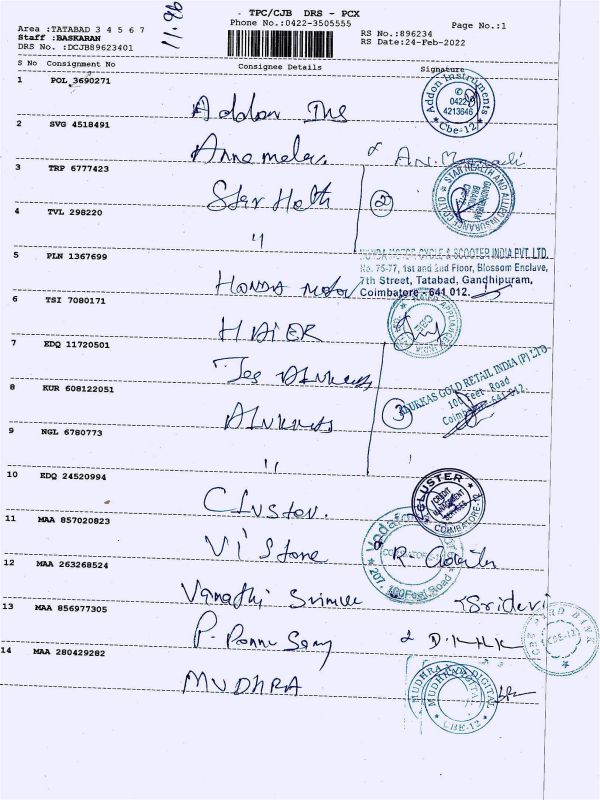 11.96
- TPC/CJB DRS - PCX
Phone No.:0422-3505555
Page No.:1
Area :TATABAD 3 4 5 6 7
Staff :BASKARAN
DRS No. :DCJB89623401
RS No.:896234
RS Date:24-Feb-2022
S No Consignment No Consignee Details Signature
1 POL 3690271
Addon Ins
Addon Instruments
0422
4213646
Cbe-12
2 SVG 4518491
Annamalai
3 TRP 6777423
Star Helth
2
STAR HEALTH AND ALLIED INSURANCE CO. LTD
4 TVL 298220
"
5 PLN 1367699
HONDA Motor
HONDA MOTORCYCLE & SCOOTER INDIA PVT. LTD.
No. 75-77, 1st and 2nd Floor, Blossom Enclave,
7th Street, Tatabad, Gandhipuram,
Coimbatore - 641 012.
6 TSI 7080171
HAIER
7 EDQ 11720501
8 KUR 608122051
3
JOYALUKKAS GOLD RETAIL INDIA (P) LTD
100 Feet Road
Coimbatore-641 012
9 NGL 6780773
"
10 EDQ 24520994
Cluster.
CLUSTER
CREDIT MANAGEMENT SERVICES
COIMBATORE-12
11 MAA 857020823
Vi Store
207, 100 Feet Road
12 MAA 263268524
Vanathi
Sridevi
13 MAA 856977305
P. Ponnu Samy
CBE-12
14 MAA 280429282
MUDHRA
MUDHRA DIGITAL
CBE-12